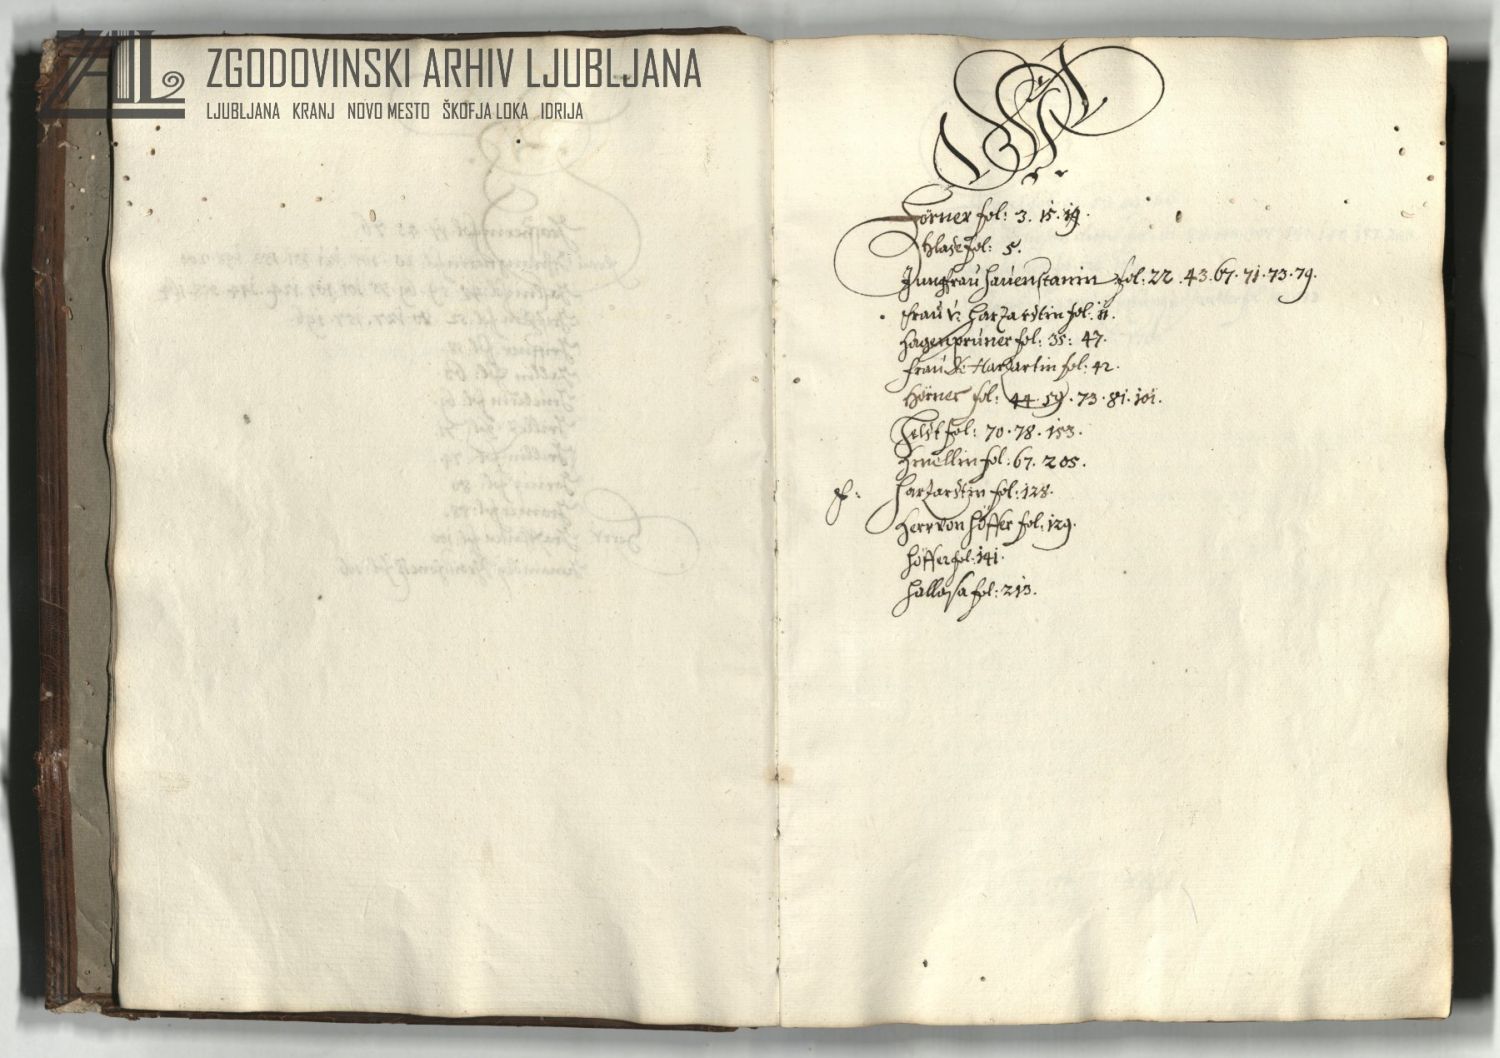 ZGODOVINSKI ARHIV LJUBLJANA
LJUBLJANA KRANJ NOVO MESTO ŠKOFJA LOKA IDRIJA
H
Hörner fol: 3. 15. 19.
fol: 5.
Jungfrau Hauenstanin fol: 22. 43. 67. 71. 73. 79.
Frau v: Harrardtin fol: 11.
Hagenpruner fol: 35: 47.
Frau Harrartin fol: 42.
Hörner fol: 44. 59. 73. 81. 101.
fol: 70. 78. 153.
fol: 67. 205.
Harrardtin fol: 128.
Herr von Höffer fol: 129.
Höffer fol: 141.
fol: 213.